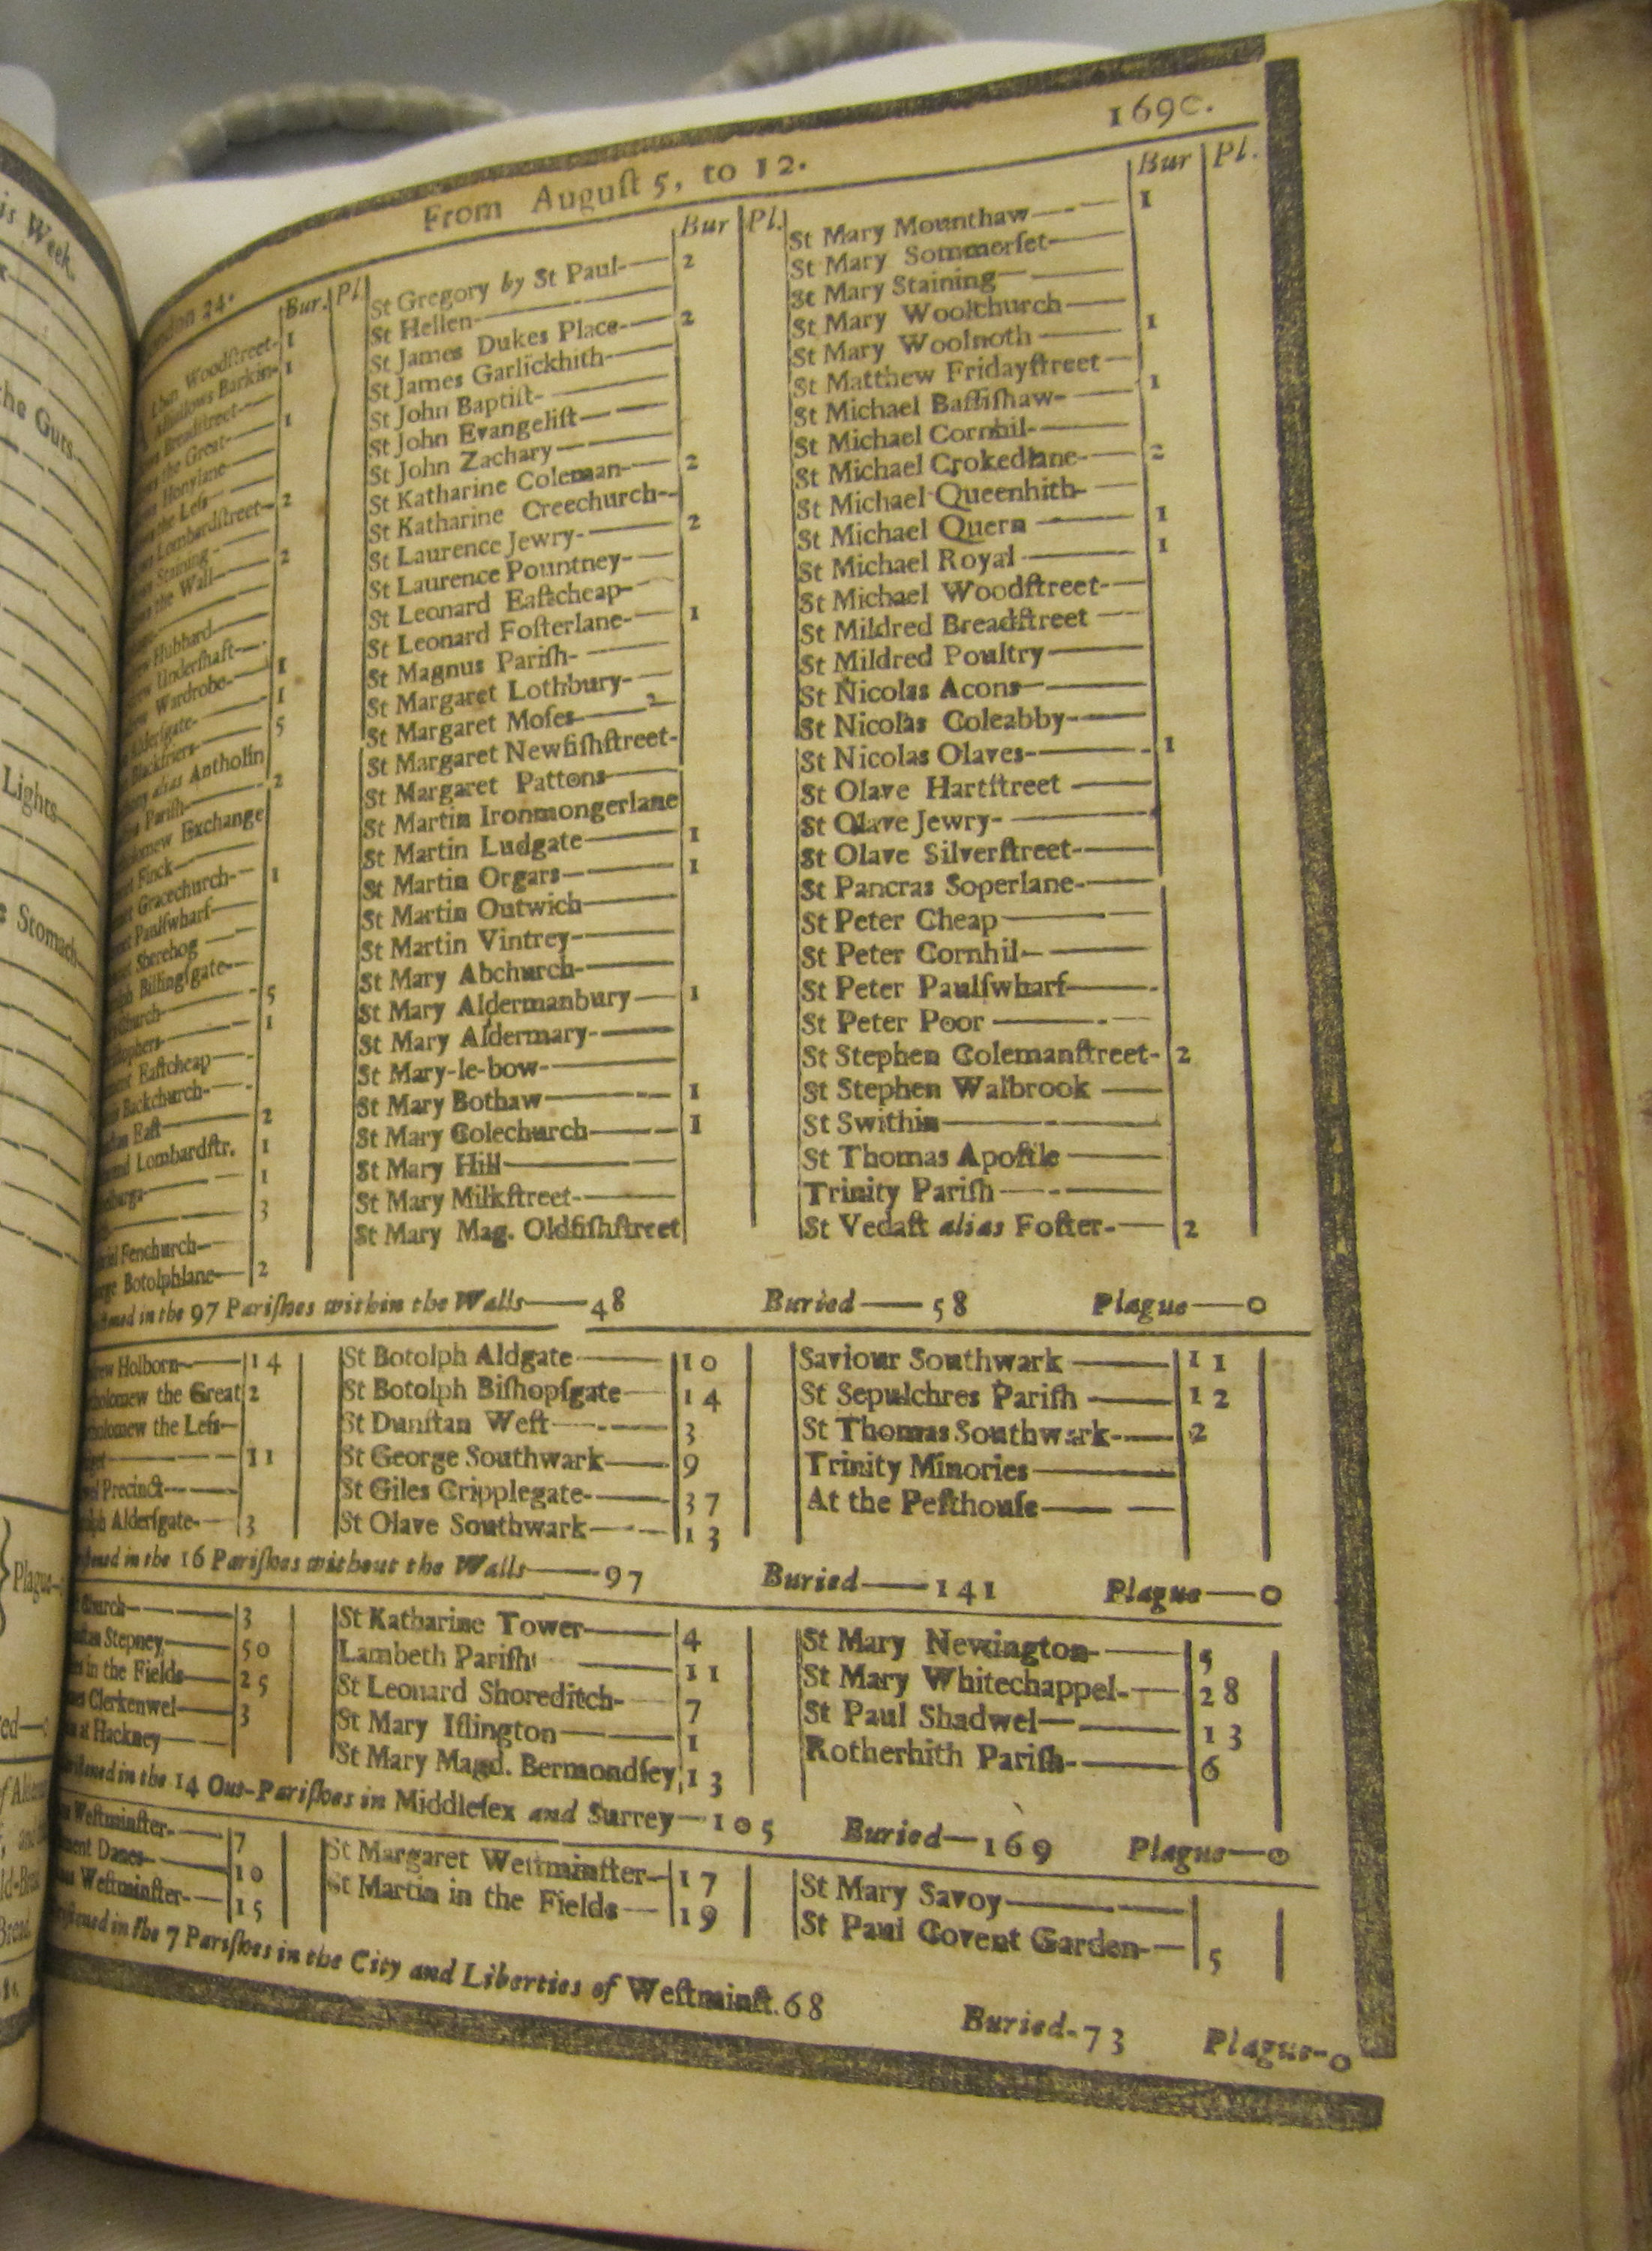 is Week.
the Guts
Lights
Stomach
Plague
From August 5, to 12. 1690.
London 24. Bur. Pl.
Woodstreet 1
Barkin 1
Breadstreet
the Great 1
Honylane
the Less
Lombardstreet 2
Staining
the Wall 2
Hubbard
Undershaft
Wardrobe 1
Aldersgate 1
Blackfriers 5
alias Antholin
Parish 2
Exchange
Finck
Gracechurch 1
Paulswharf
Sherehog
Billingsgate
church 5
1
Eastcheap
Backchurch
East 2
Lombardstr. 1
1
3
Fenchurch
Botolphlane 2
Bur Pl.
St Gregory by St Paul 2
St Hellen
St James Dukes Place 2
St James Garlickhith
St John Baptist
St John Evangelist
St John Zachary
St Katharine Coleman 2
St Katharine Creechurch
St Laurence Jewry 2
St Laurence Pountney
St Leonard Eastcheap
St Leonard Fosterlane 1
St Magnus Parish
St Margaret Lothbury
St Margaret Moses 2
St Margaret Newfishstreet
St Margaret Pattons
St Martin Ironmongerlane
St Martin Ludgate 1
St Martin Orgars 1
St Martin Outwich
St Martin Vintrey
St Mary Abchurch
St Mary Aldermanbury 1
St Mary Aldermary
St Mary-le-bow
St Mary Bothaw 1
St Mary Colechurch 1
St Mary Hill
St Mary Milkstreet
St Mary Mag. Oldfishstreet
Bur Pl.
St Mary Mounthaw 1
St Mary Sommerset
St Mary Staining
St Mary Woolchurch
St Mary Woolnoth 1
St Matthew Fridaystreet
St Michael Bassishaw 1
St Michael Cornhil
St Michael Crokedlane 2
St Michael Queenhith
St Michael Quern 1
St Michael Royal 1
St Michael Woodstreet
St Mildred Breadstreet
St Mildred Poultry
St Nicolas Acons
St Nicolas Coleabby
St Nicolas Olaves 1
St Olave Hartstreet
St Olave Jewry
St Olave Silverstreet
St Pancras Soperlane
St Peter Cheap
St Peter Cornhil
St Peter Paulswharf
St Peter Poor
St Stephen Colemanstreet 2
St Stephen Walbrook
St Swithin
St Thomas Apostle
Trinity Parish
St Vedast alias Foster 2
in the 97 Parishes within the Walls 48 Buried 58 Plague 0
Holborn 14
the Great 2
the Less
11
Precinct
Aldersgate 3
St Botolph Aldgate 10
St Botolph Bishopsgate 14
St Dunstan West 3
St George Southwark 9
St Giles Cripplegate 37
St Olave Southwark 13
Saviour Southwark 11
St Sepulchres Parish 12
St Thomas Southwark 2
Trinity Minories
At the Pesthouse
in the 16 Parishes without the Walls 97 Buried 141 Plague 0
Church 3
Stepney 50
in the Fields 25
Clerkenwel 3
at Hackney
St Katharine Tower 4
Lambeth Parish 11
St Leonard Shoreditch 7
St Mary Islington 1
St Mary Magd. Bermondsey 13
St Mary Newington 5
St Mary Whitechappel 28
St Paul Shadwel 13
Rotherhith Parish 6
in the 14 Out-Parishes in Middlesex and Surrey 105 Buried 169 Plague 0
Westminster 7
Danes 10
Westminster 15
St Margaret Westminster 17
St Martin in the Fields 19
St Mary Savoy
St Paul Covent Garden 5
in the 7 Parishes in the City and Liberties of Westminst. 68 Buried 73 Plague 0